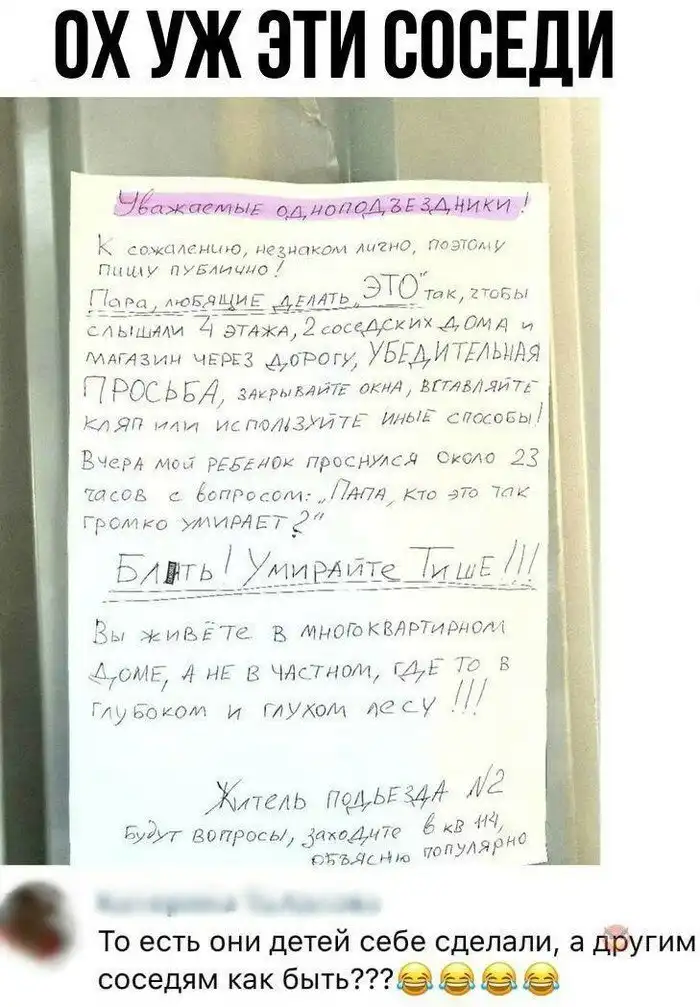 ОХ УЖ ЭТИ СОСЕДИ
Уважаемые одноподъездники!
К сожалению, незнаком лично, поэтому
пишу публично!
Пара, любящие делать „ЭТО" так, чтобы
слышали 4 этажа, 2 соседских дома и
магазин через дорогу, УБЕДИТЕЛЬНАЯ
ПРОСЬБА, закрывайте окна, вставляйте
кляп или используйте иные способы!
Вчера мой ребёнок проснулся около 23
часов с вопросом: „Папа, кто это так
громко умирает?"
Бл ть! Умирайте Тише!!!
Вы живёте в многоквартирном
доме, а не в частном, где то в
глубоком и глухом лесу!!!
Житель подьезда №2
Будут вопросы, заходите в кв 114,
объясню популярно
То есть они детей себе сделали, а другим
соседям как быть???😂😂😂😂